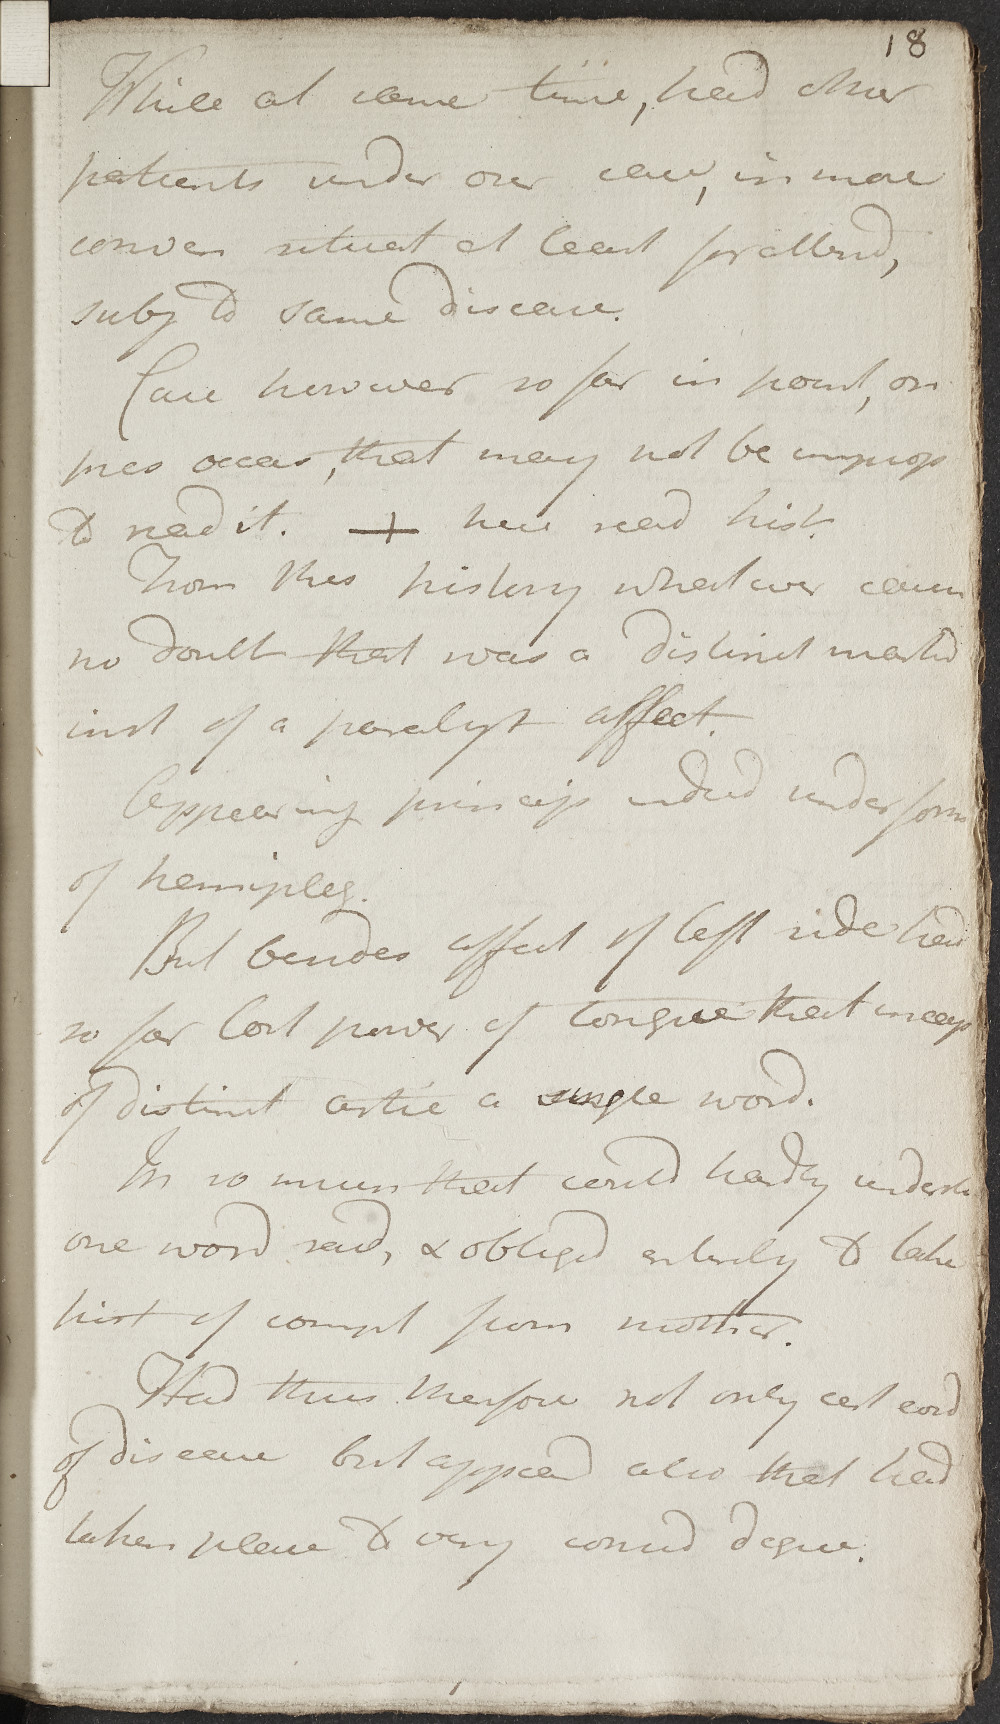 18
While at same time, had other
patients under our care, in more
conven situat at least for attend,
subj to same disease.
Case however so far in point, on
pres occas, that may not be improp
to read it. + here read hist.
From this history whatever cause
no doubt that was a distinct marked
inst of a paralyt affect.
Appearing princip indeed under form
of hemipleg.
But besides affect of left side had
so far lost power of tongue that incap
of distinct artic a single word.
In so much that could hardly underst
one word said, & obliged entirely to take
hist of compl from mother.
Had thus therfore not only evid
of disease but appeared also that had
taken place to very consid degree.